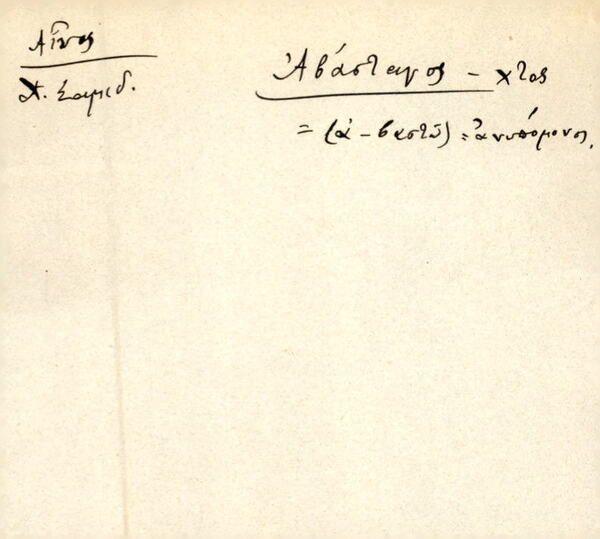 Αἶνος
Χ. Σαμιδ.
Ἀβάσταγος – χτος
= (ἀ – βαστῶ) = ἀνυπόμονος.